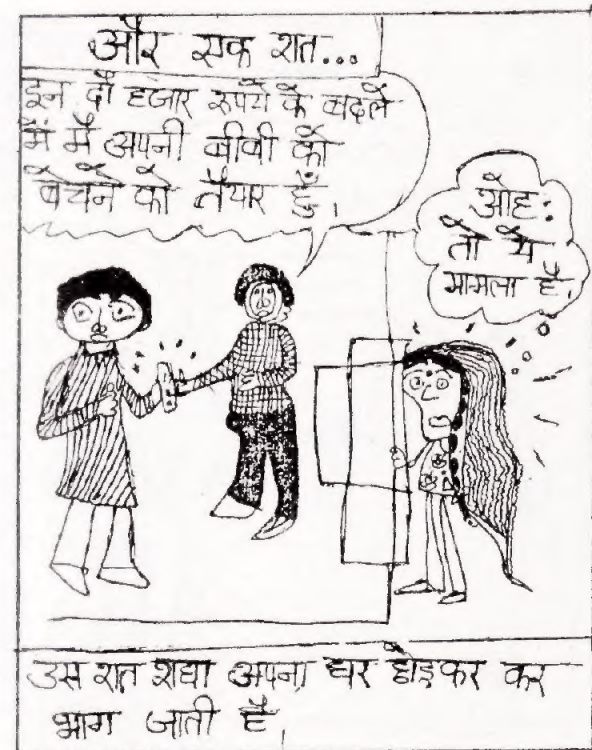 और एक रात...
इन दो हजार रुपयों के बदले
में मैं अपनी बीवी को
बेचने को तैयार हूँ।
ओह:
तो ये
मामला है।
उस रात राधा अपना घर छोड़कर कर
भाग जाती है।